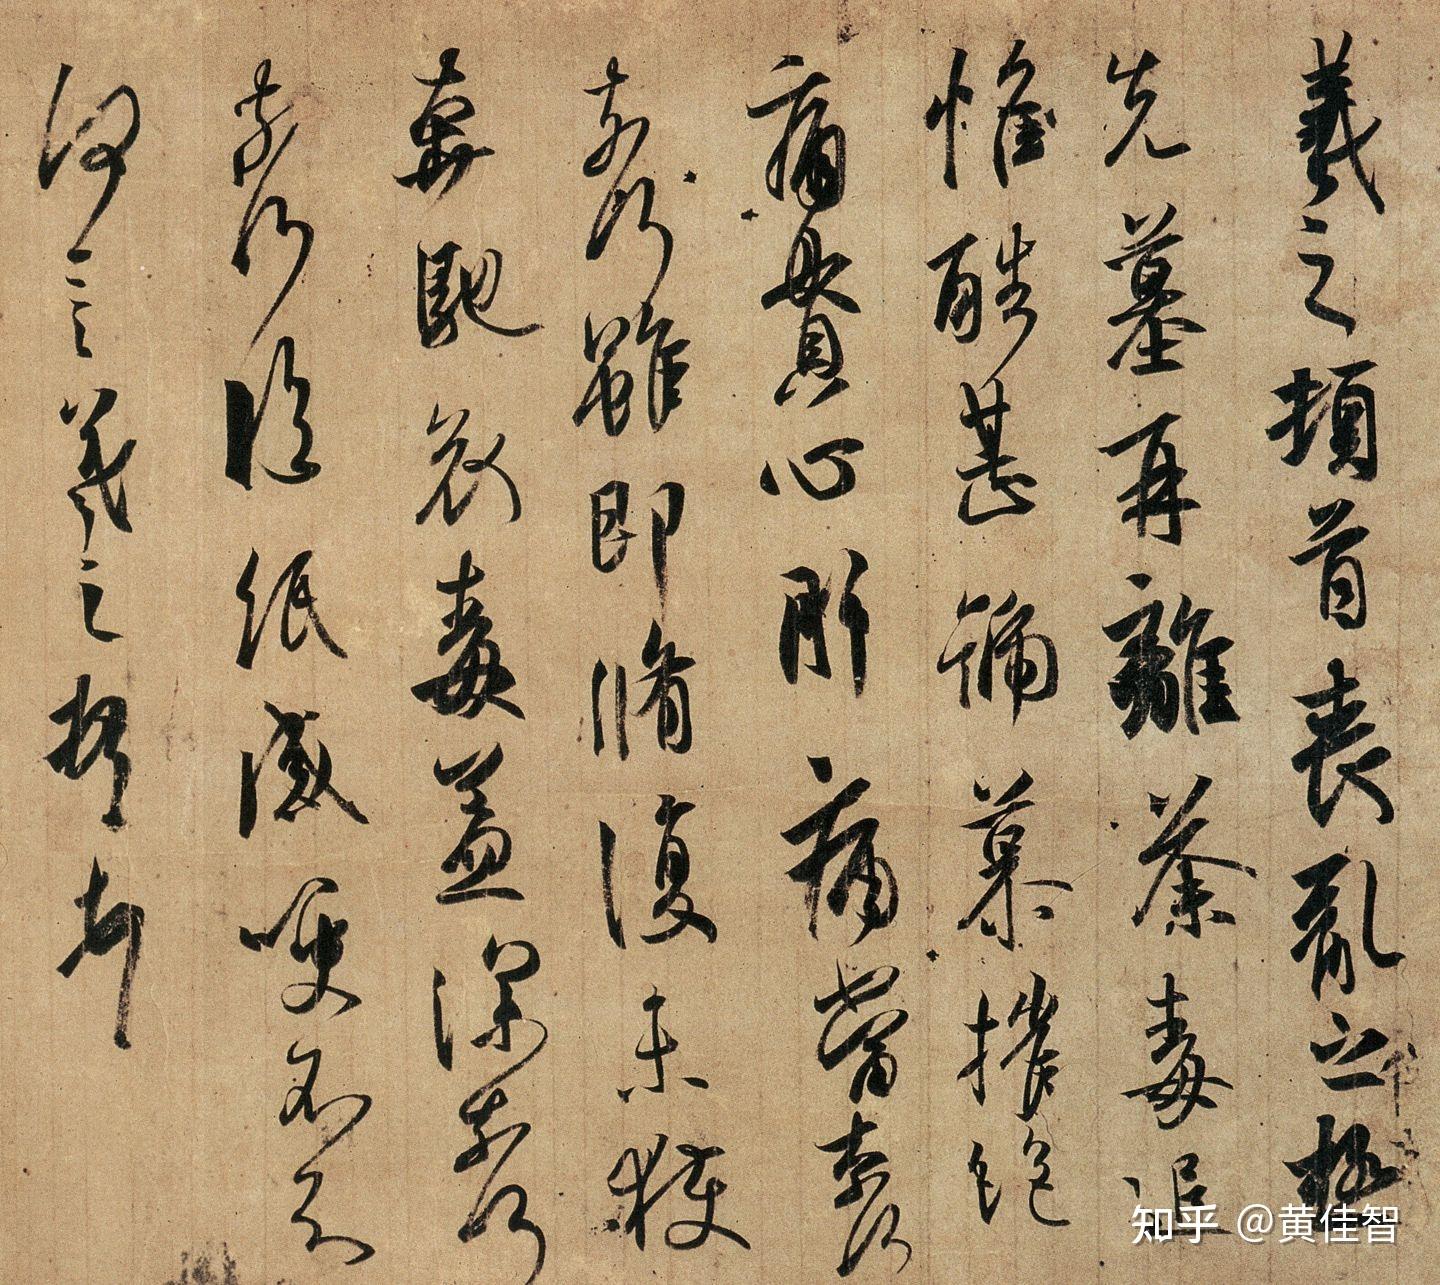 羲之頓首喪亂之極
先墓再離荼毒追
惟酷甚號慕摧絕
痛貫心肝痛當奈何
奈何雖即脩復未獲
奔馳哀毒益深奈何
奈何臨紙感哽不知
何言羲之頓首頓首
知乎 @黄佳智